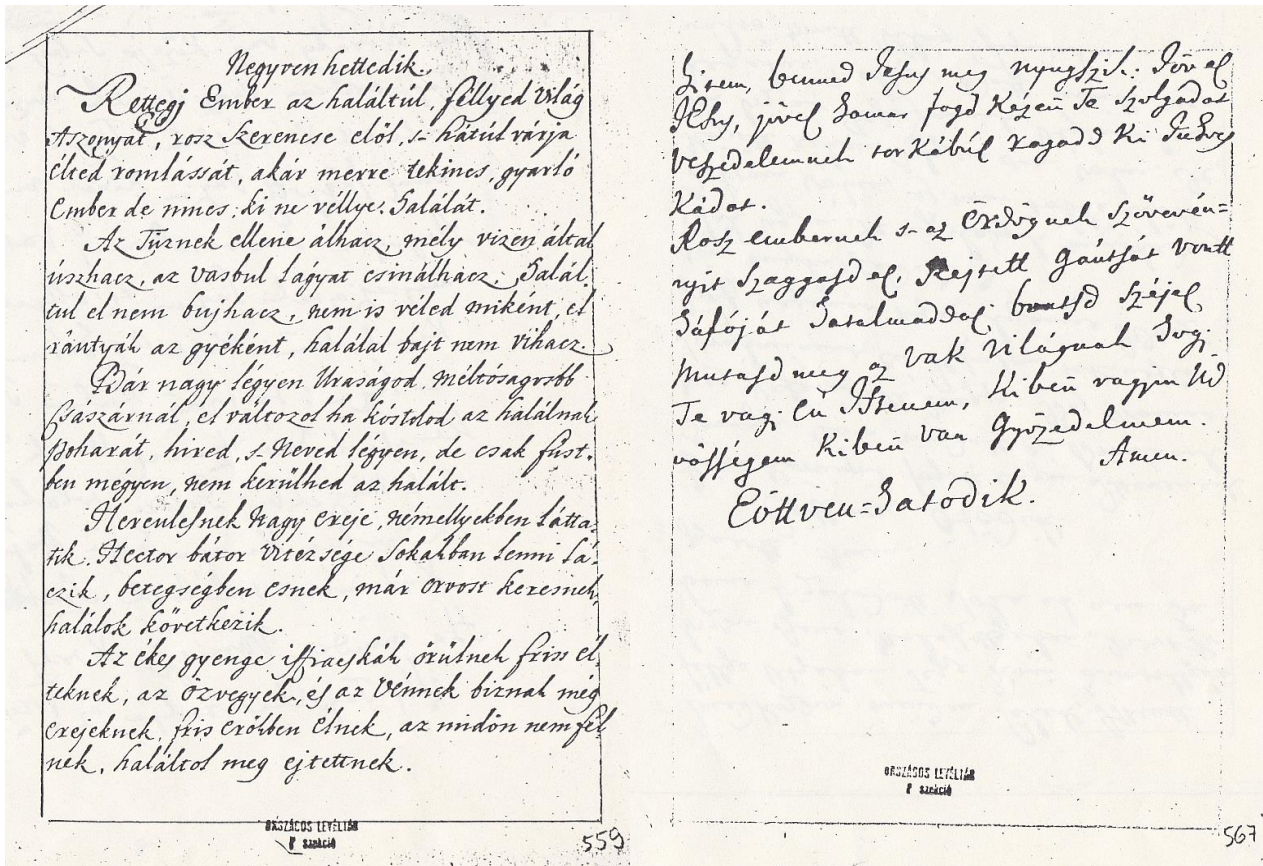 Negyven hettedik.
Rettegj Ember az haláltúl, féllyed Világ
Aszonyát, rosz szerencse elöl, s hátúl várja
élted romlássát, akár merre tekincs, gyarló
Ember de nincs, ki ne véllye halálát.
Az Tüznek ellene álhacz, mély vizen által
úszhacz, az vasbul lágyat csinálhacz: halál-
tul el nem bujhacz, nem is véled miként, el
rántyák az gyéként, halálal bajt nem vihacz.
Bár nagy légyen Uraságod, méltóságosbb
Császárnál, el változol ha kóstolod az halálnak
poharát, hired, s Neved légyen, de csak füst-
ben mégyen, nem kerülhed az halált.
Herculesnek Nagy ereje, némellyekben látta-
tik. Hector bátor Vitézsége sokakban lenni lá-
czik, betegségben esnek, már orvost keresnek,
halálok következik.
Az ékes gyenge iffiacskák örülnek friss él-
teknek, az özvegyek, és az Vénnek biznak még
erejeknek, fris erőkben élnek, az midőn nem fél-
nek, haláltol meg ejtettnek.
ORSZÁGOS LEVÉLTÁR
P szekció
559
hitem, benned Jesus meg nyugszik. Jövel
Jesus, jövel hamar fogd Kézen Te szolgádat
veszedelemnek torkábúl ragadd Ki Juhocs
kádot.
Rosz embernek s az Ördögnek szövevén=
nyit szaggasd el, Rejtett gántsját vontt
hálóját hatalmaddal bontsd széjel
Mutasd meg az vak Világnak hogy
Te vagy én Istenem, Kiben vagyon Üd
vösségem Kiben van Győzedelmem.
Amen.
Eöttven=hatodik.
ORSZÁGOS LEVÉLTÁR
P szekció
567